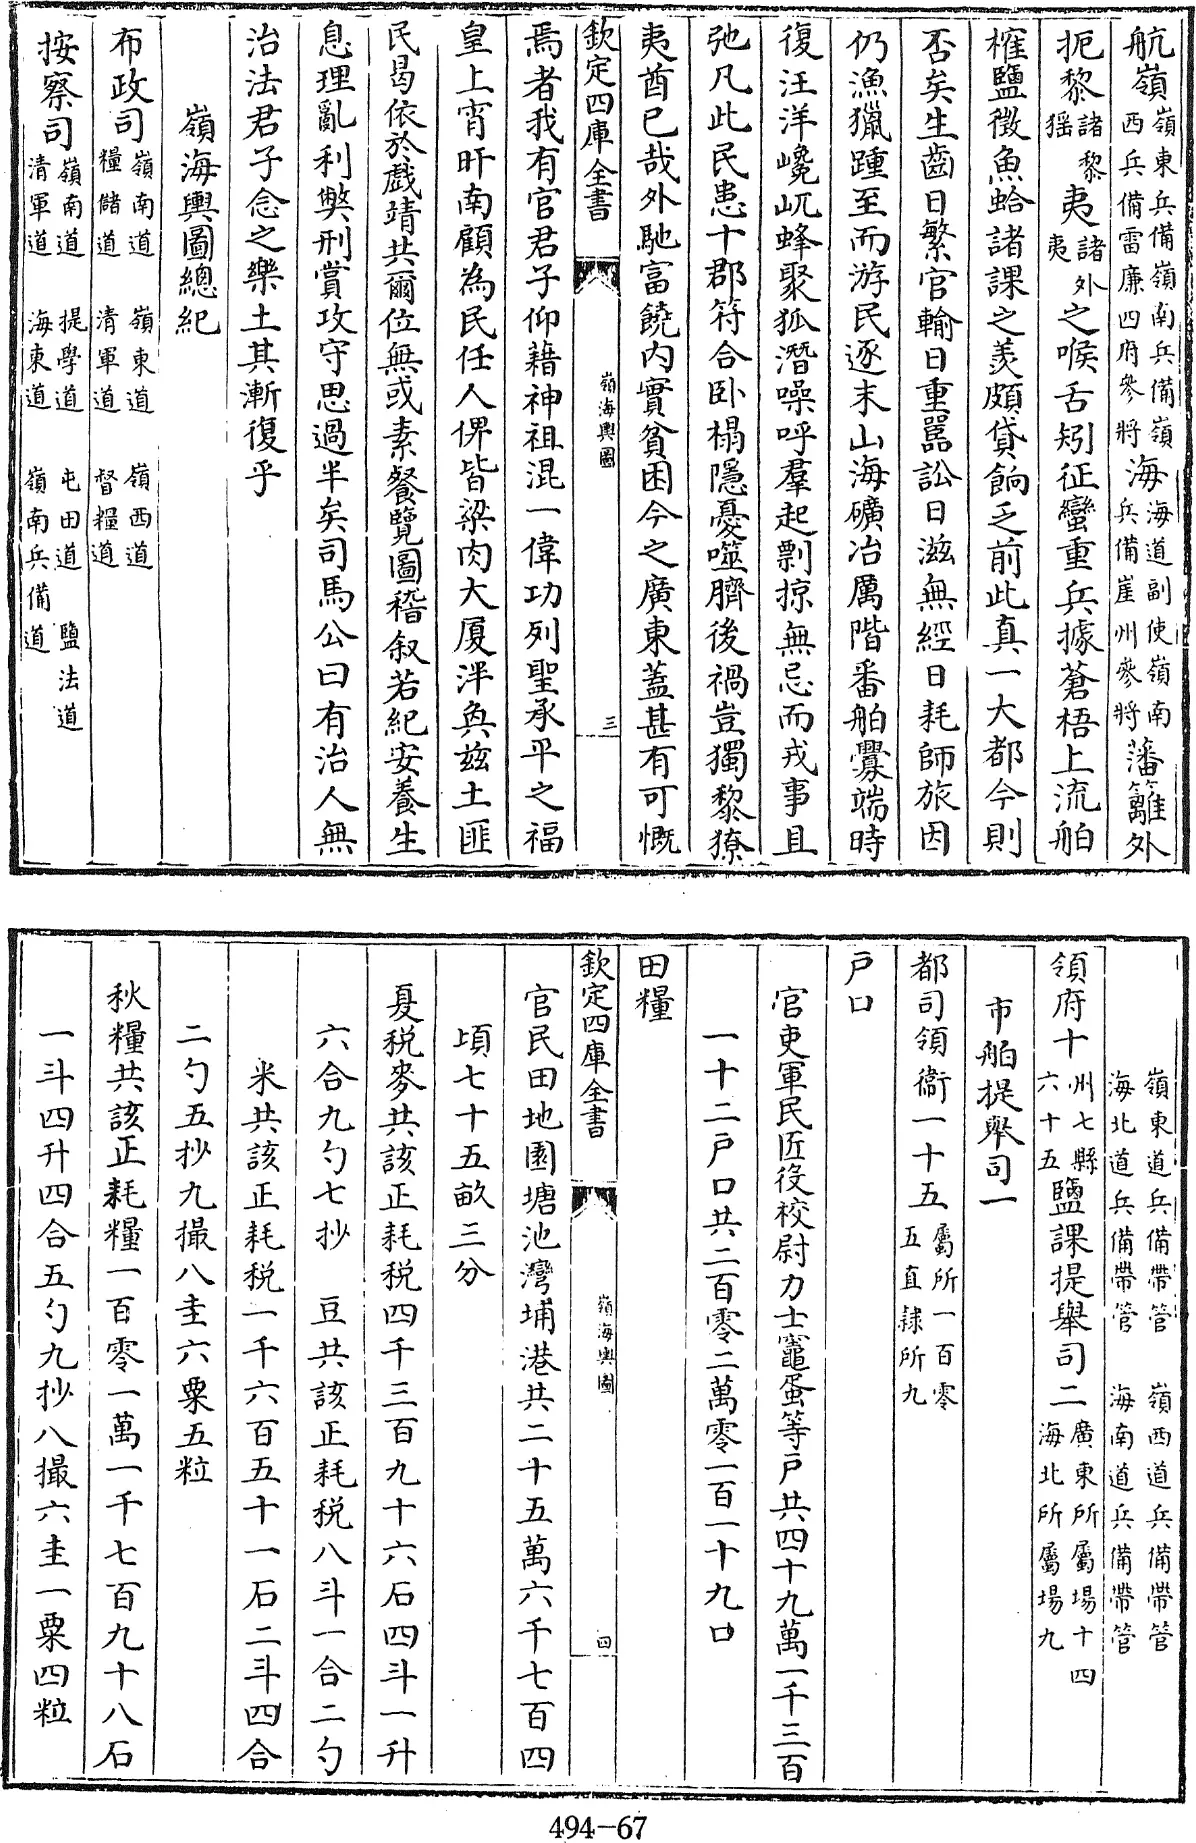 航嶺嶺東兵備嶺南兵備嶺西兵備雷廉四府參將海海道副使嶺南兵備崖州參將藩籬外
扼黎諸黎猺夷諸外夷之喉舌矧征蠻重兵據蒼梧上流舶
榷鹽徵魚蛤諸課之羨頗貸餉乏前此真一大都今則
否矣生齒日繁官輸日重嚚訟日滋無經日耗師旅因
仍漁獵踵至而游民逐末山海礦冶厲階番舶釁端時
復汪洋巉屼蜂聚狐潛噪呼羣起剽掠無忌而戎事且
弛凡此民患十郡符合卧榻隱憂噬臍後禍豈獨黎獠
夷酋已哉外馳富饒内實貧困今之廣東蓋甚有可慨
欽定四庫全書
嶺海輿圖
三
焉者我有官君子仰藉神祖混一偉功列聖承平之福
皇上宵旰南顧為民任人俾皆粱肉大厦泮奐兹土匪
民曷依於戲靖共爾位無或素餐覽圖稽叙若紀安養生
息理亂利弊刑賞攻守思過半矣司馬公曰有治人無
治法君子念之樂土其漸復乎
嶺海輿圖總紀
布政司嶺南道 嶺東道 嶺西道糧儲道 清軍道 督糧道
按察司嶺南道 提學道 屯田道 鹽法道清軍道 海東道 嶺南兵備道
嶺東道兵備帶管 嶺西道兵備帶管海北道兵備帶管 海南道兵備帶管
領府十州七縣六十五鹽課提舉司二廣東所屬場十四海北所屬場九
市舶提舉司一
都司領衞一十五屬所一百零五直隸所九
戸口
官吏軍民匠役校尉力士竈蛋等戸共四十九萬一千三百
一十二戸口共二百零二萬零一百一十九口
田糧
欽定四庫全書
嶺海輿圖
四
官民田地園塘池灣埔港共二十五萬六千七百四
頃七十五畝三分
夏税麥共該正耗税四千三百九十六石四斗一升
六合九勺七抄 豆共該正耗税八斗一合二勺
米共該正耗税一千六百五十一石二斗四合
二勺五抄九撮八圭六粟五粒
秋糧共該正耗糧一百零一萬一千七百九十八石
一斗四升四合五勺九抄八撮六圭一粟四粒
494-67